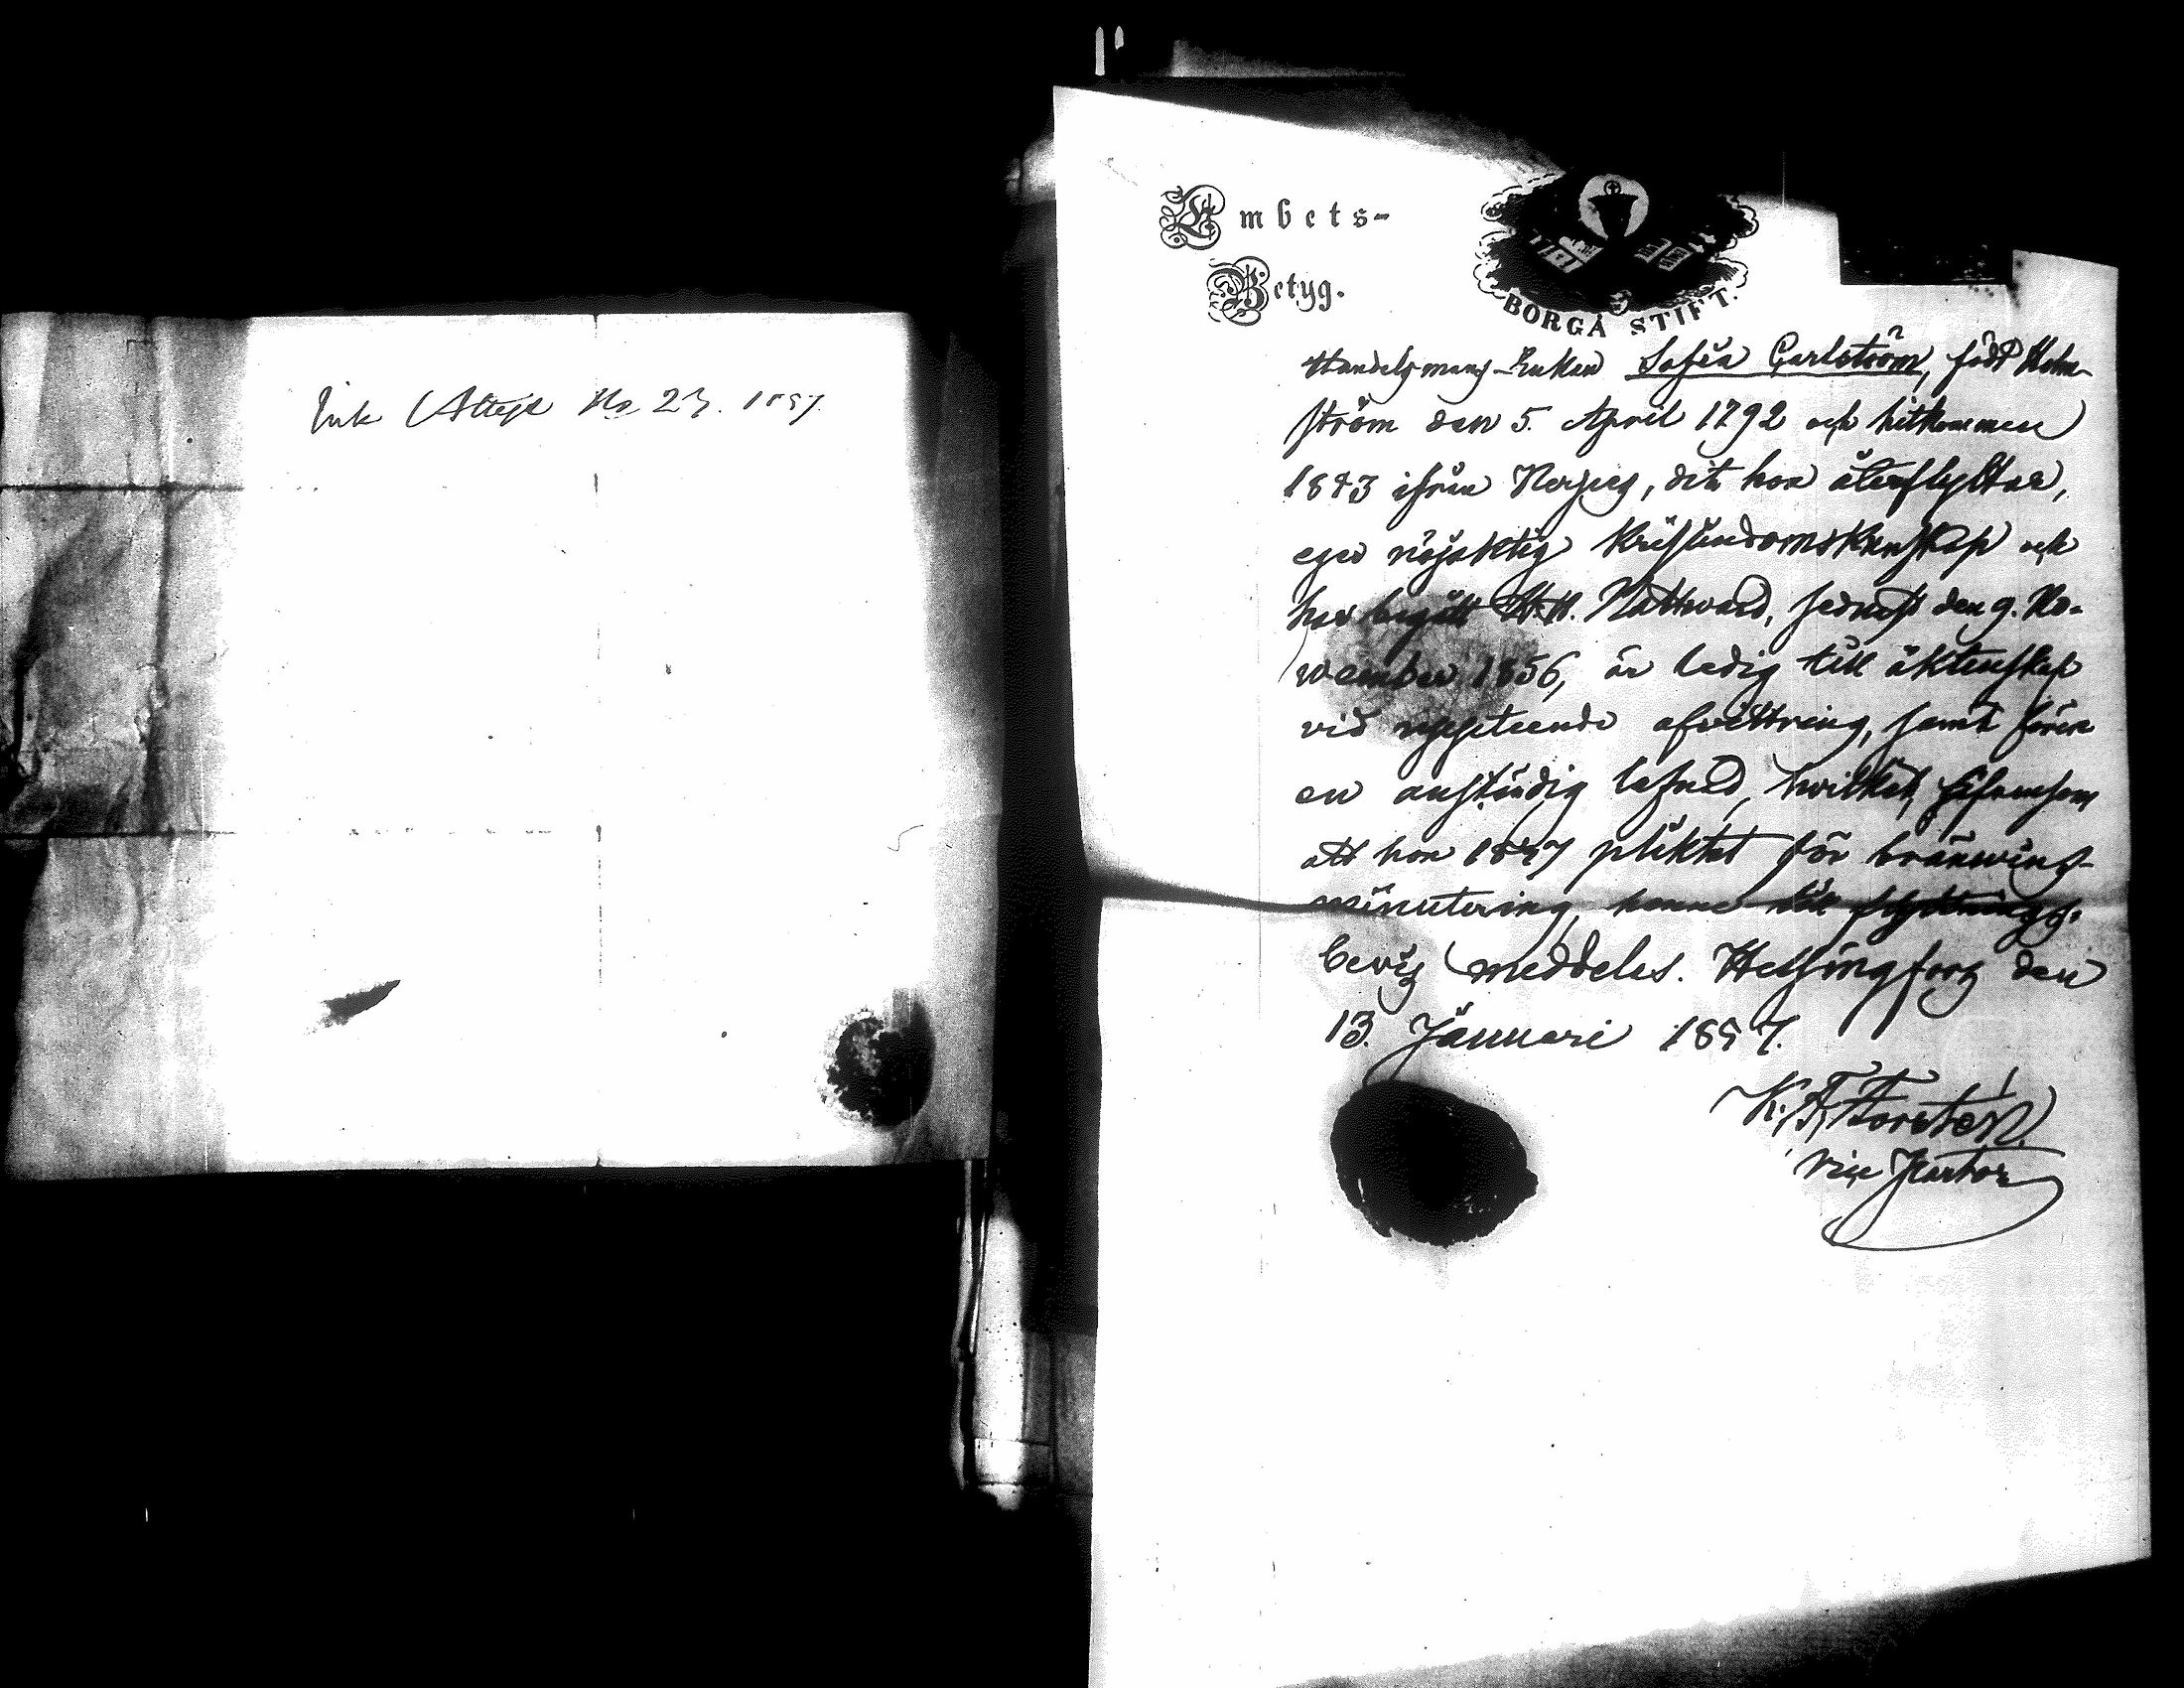 Ink Attest No 23. 1857.
Embets-
Betyg.
BORGÅ STIFT.
Handelsmans-Enkan Sofia Carlström, född Holm-
ström den 5. April 1792 och hitkommen
1843 ifrån Nerpes, dit hon återflyttar,
eger nöjaktig Kristendomskunskap och
har begått H.H. Nattvard, sednast den 9. No-
vember 1856, är ledig till äktenskap
vid uppteende afvittring, samt förer
en anständig lefnad, hvilket,
att hon 1847 pliktat för bränvins-
minutering, henne till flyttnings-
bevis meddelas. Helsingfors den
13. Januari 1857.
K. F. Forstén
Vice Pastor